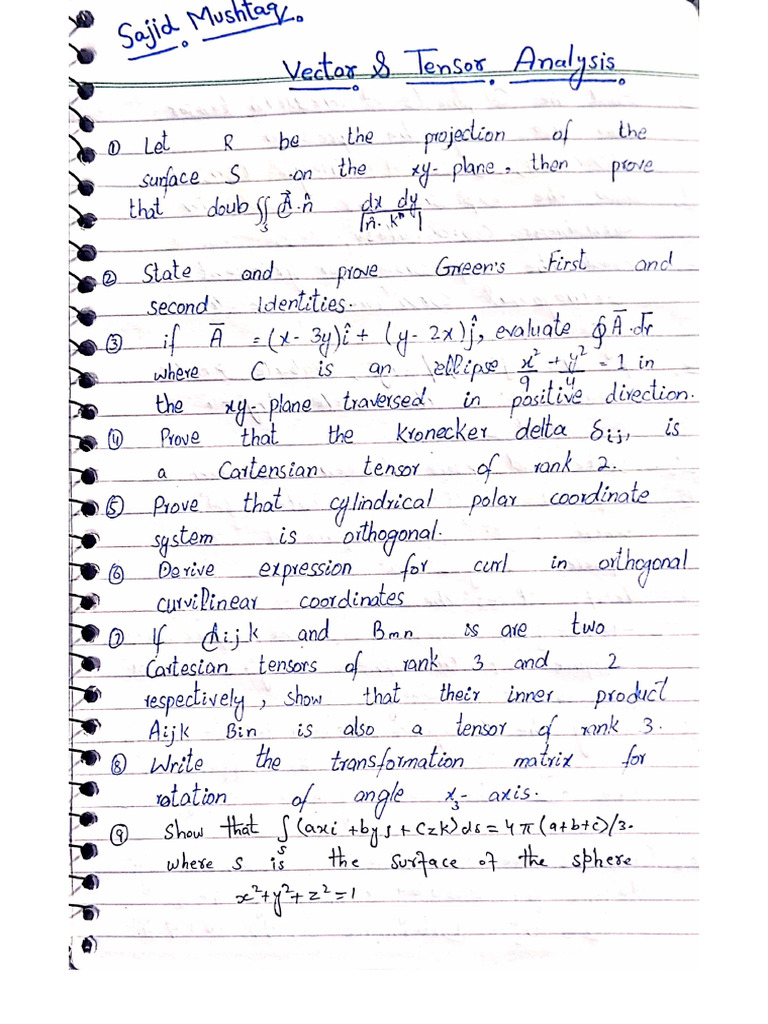 Sajid Mushtaq.
Vector & Tensor Analysis.
① Let R be the projection of the
surface S on the xy-plane, then prove
that doub ∬_S A⃗.n̂ dx dy / |n̂. k^n|
② State and prove Green's First and
second Identities.
③ if A̅ = (x-3y)î + (y-2x)ĵ, evaluate ∮A̅.dr̅
where C is an ellipse x²/9 + y²/4 = 1 in
the xy-plane traversed in positive direction.
④ Prove that the Kronecker delta δij, is
a Cartensian tensor of rank 2.
⑤ Prove that cylindrical polar coordinate
system is orthogonal.
⑥ Derive expression for curl in orthogonal
curvilinear coordinates
⑦ If Aijk and Bmn is are two
Cartesian tensors of rank 3 and 2
respectively, show that their inner product
Aijk Bin is also a tensor of rank 3.
⑧ Write the transformation matrix for
rotation of angle x₃-axis.
⑨ Show that ∫_S (axi + byj + Czk)ds = 4π(a+b+c)/3.
where s is the surface of the sphere
x²+y²+z²=1